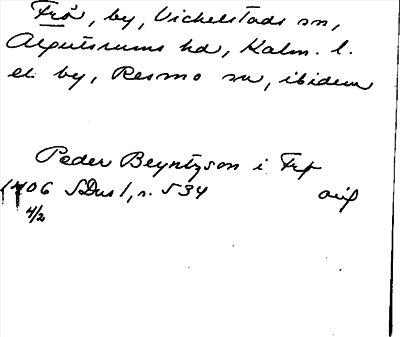 Frö, by, Vickelstads sn,
Algutsrums hd, Kalm. l.
el. by, Resmo sn, ibidem
Peder Beyntzson i Frø
1406 SDns 1, s. 534 orig
4/2